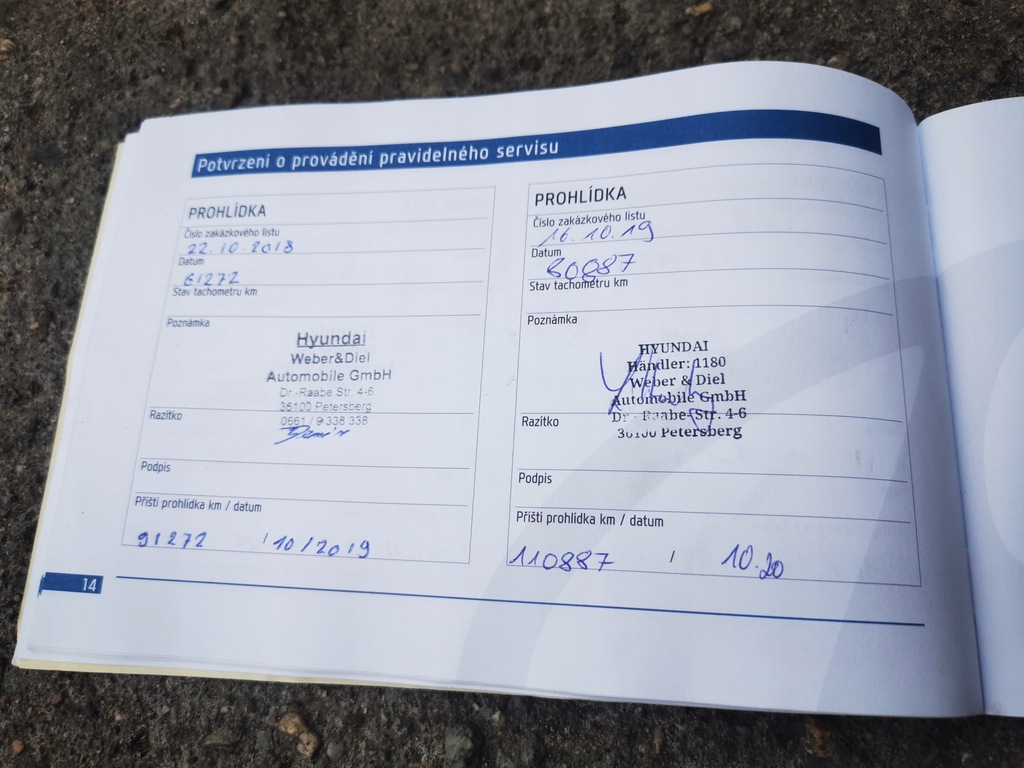 Potvrzení o provádění pravidelného servisu
PROHLÍDKA
Číslo zakázkového listu
22.10.2018
Datum
61272
Stav tachometru km
Poznámka
Hyundai
Weber&Diel
Automobile GmbH
Dr.-Raabe Str. 4-6
36100 Petersberg
0661 / 9 338 338
Razítko
Podpis
Příští prohlídka km / datum
91272 / 10/2019
PROHLÍDKA
Číslo zakázkového listu
16.10.19
Datum
80887
Stav tachometru km
Poznámka
HYUNDAI
Händler: 1180
Weber & Diel
Automobile GmbH
Dr - Raabe-Str. 4-6
36100 Petersberg
Razítko
Podpis
Příští prohlídka km / datum
110887 / 10.20
14